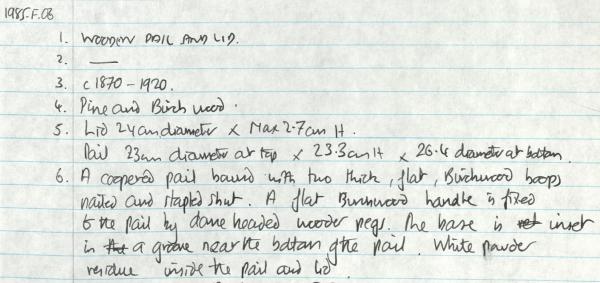 1985.F.08
1. WOODEN PAIL AND LID.
2. —
3. c 1870 - 1920.
4. Pine and Birch wood.
5. Lid 24cm diameter x Max 2.7cm H.
Pail 23cm diameter at top x 23.3cm H x 26.4 diameter at bottom.
6. A coopered pail bound with two thick, flat, Birchwood hoops
nailed and stapled shut. A flat Birchwood handle is fixed
to the pail by dome headed wooden pegs. The base is inset
in a groove near the bottom of the pail. White powder
residue inside the pail and lid.